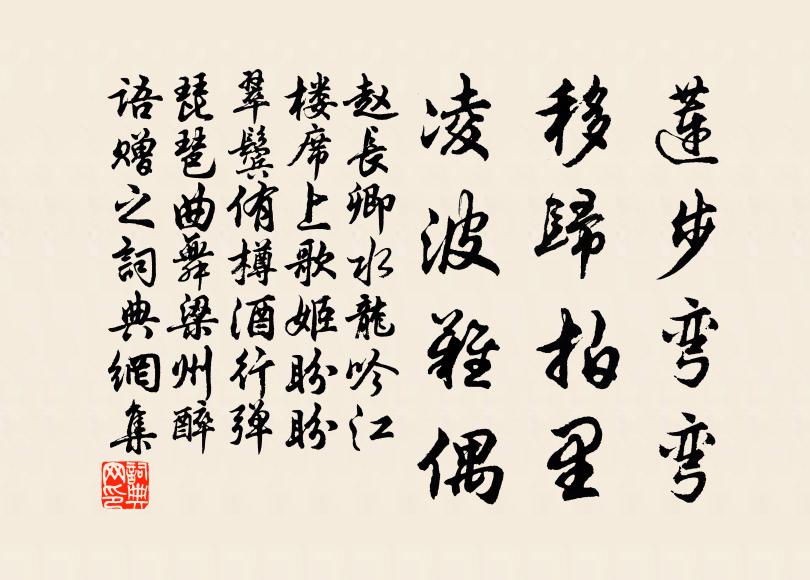 蓮步彎彎
移歸拍里
凌波難偶
赵長卿水龍吟江
楼席上歌姬盼盼
翠鬟侑樽酒行弹
琵琶曲舞梁州醉
語赠之詞典網集
詞典网印